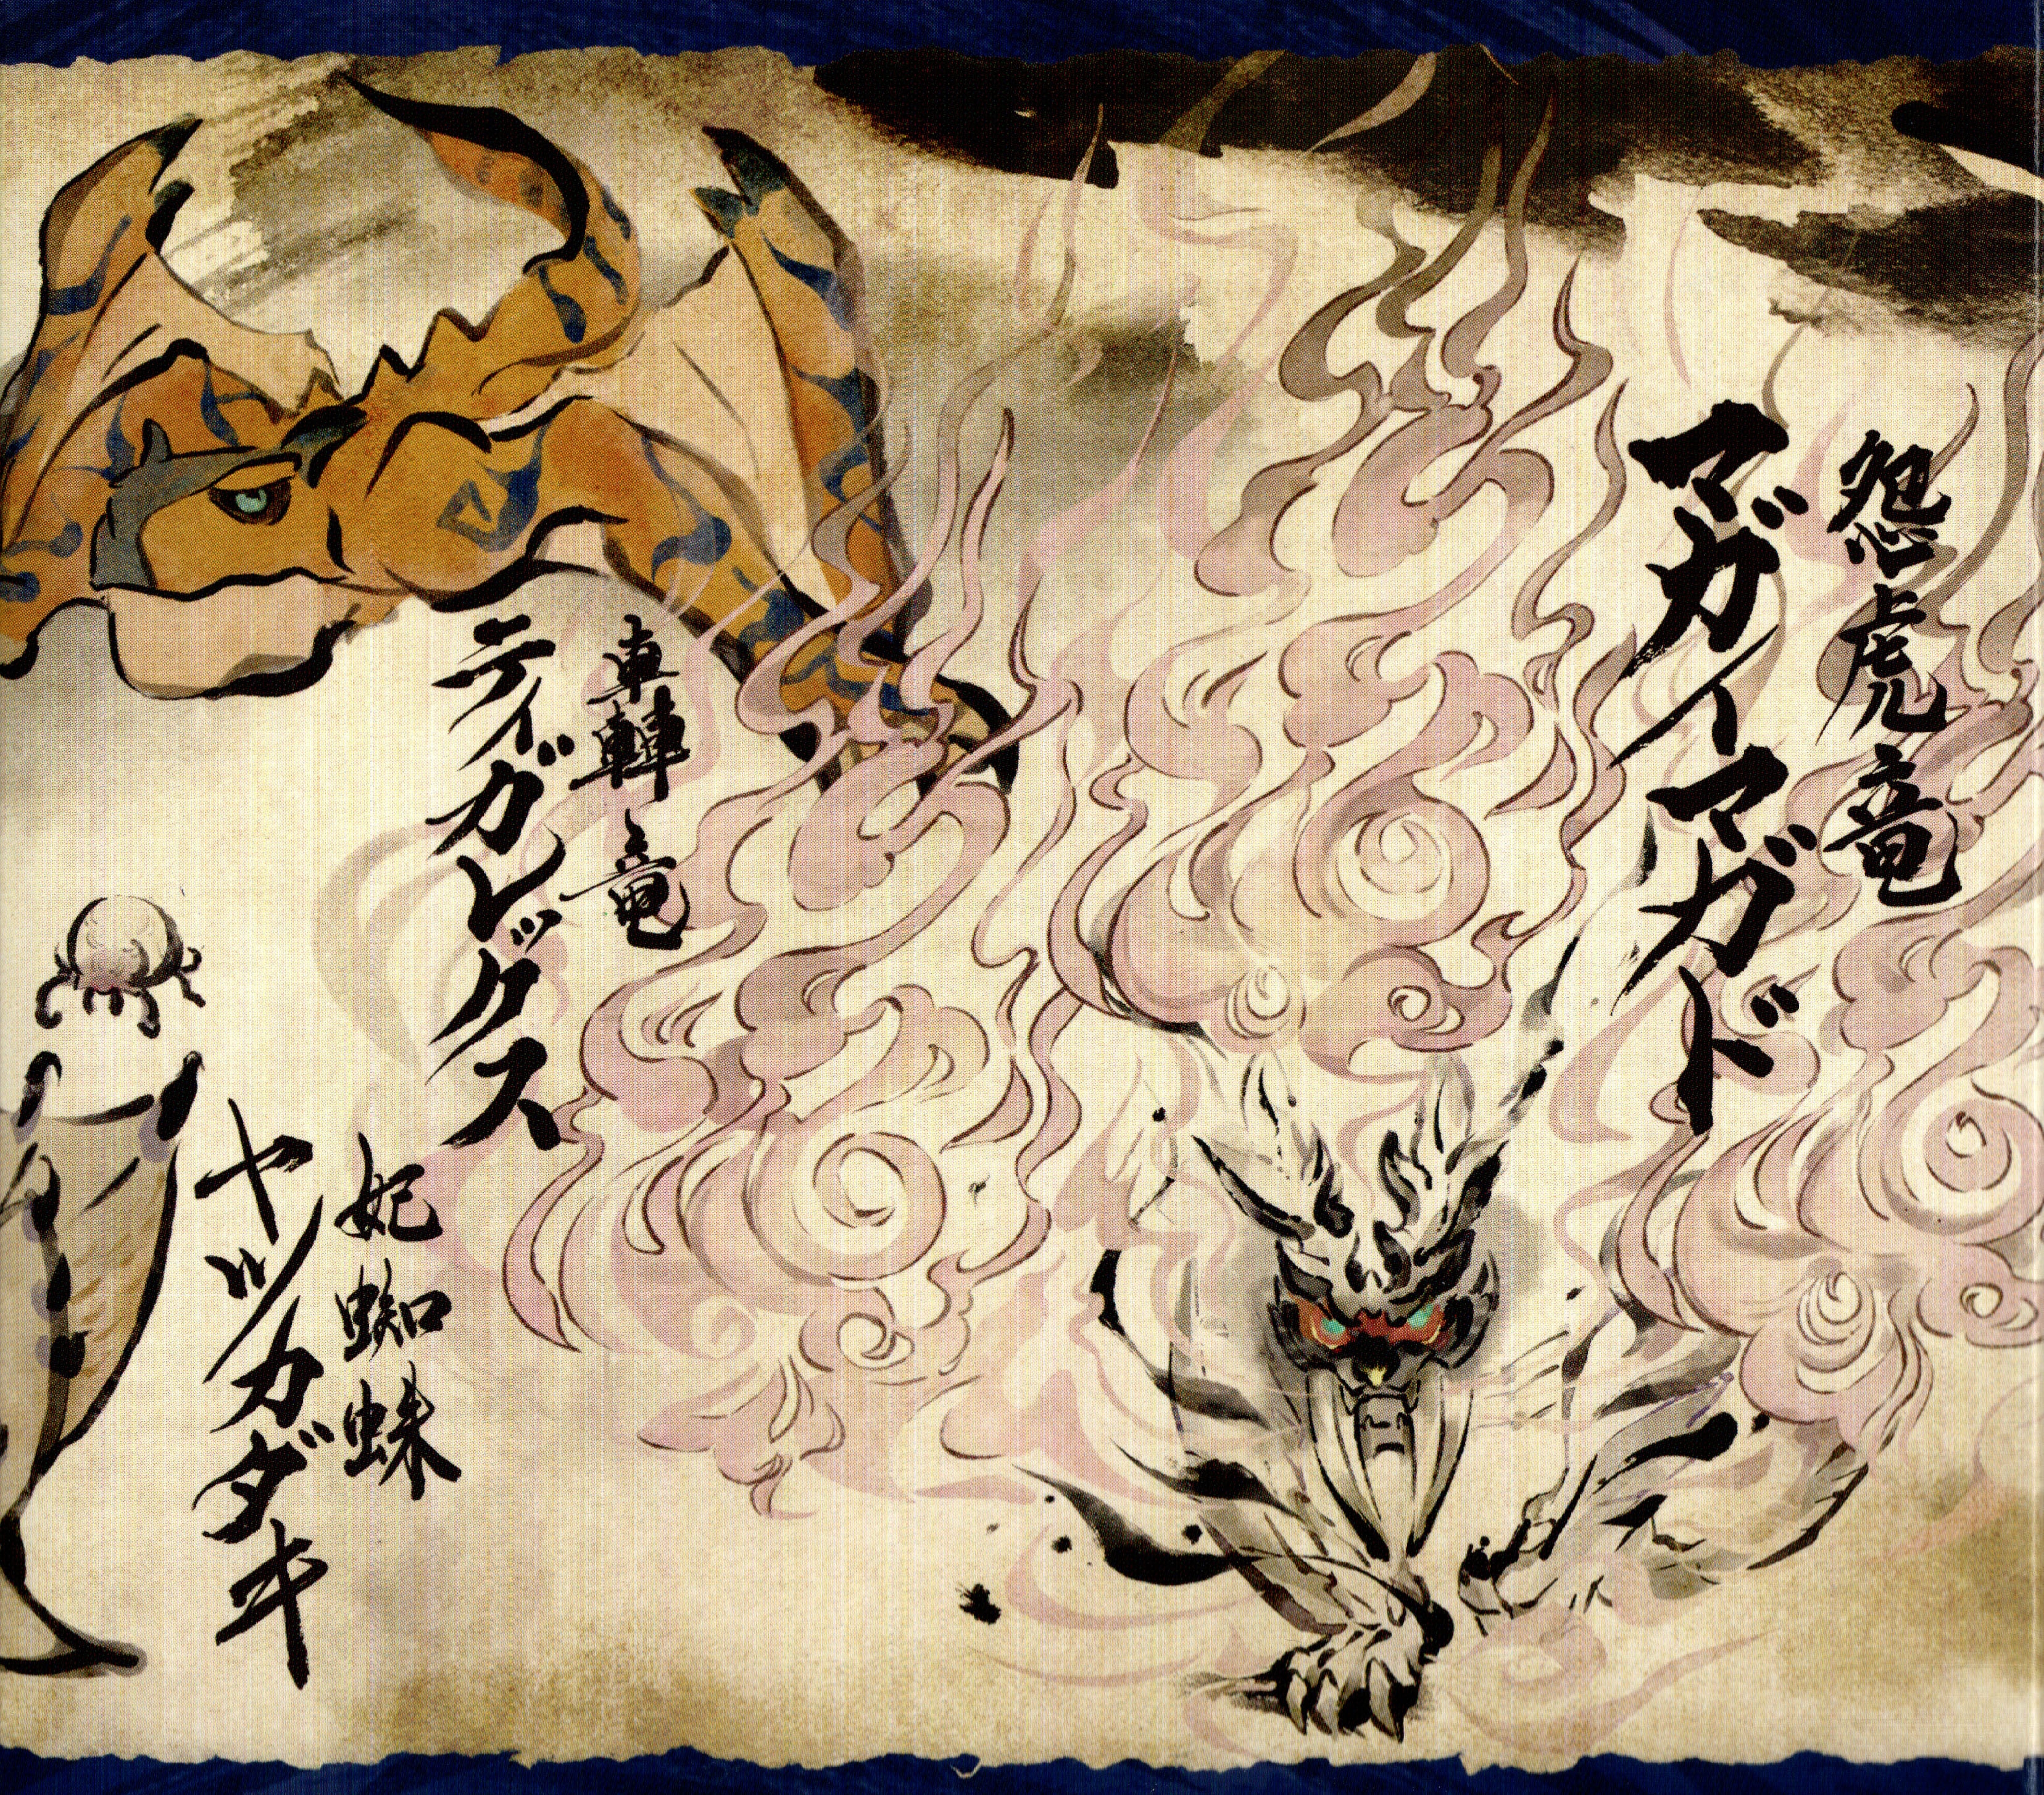 怨虎竜
マガイマガド
轟竜
ティガレックス
妃蜘蛛
ヤツカダキ